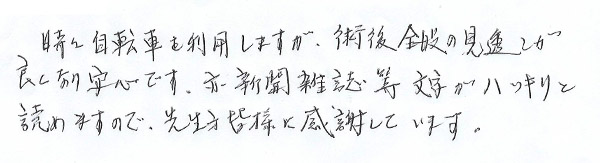 時々自転車を利用しますが、術後全般の見透しが
良くなり安心です、亦新聞雑誌等文字がハッキリと
読めますので、先生方皆様に感謝しています。